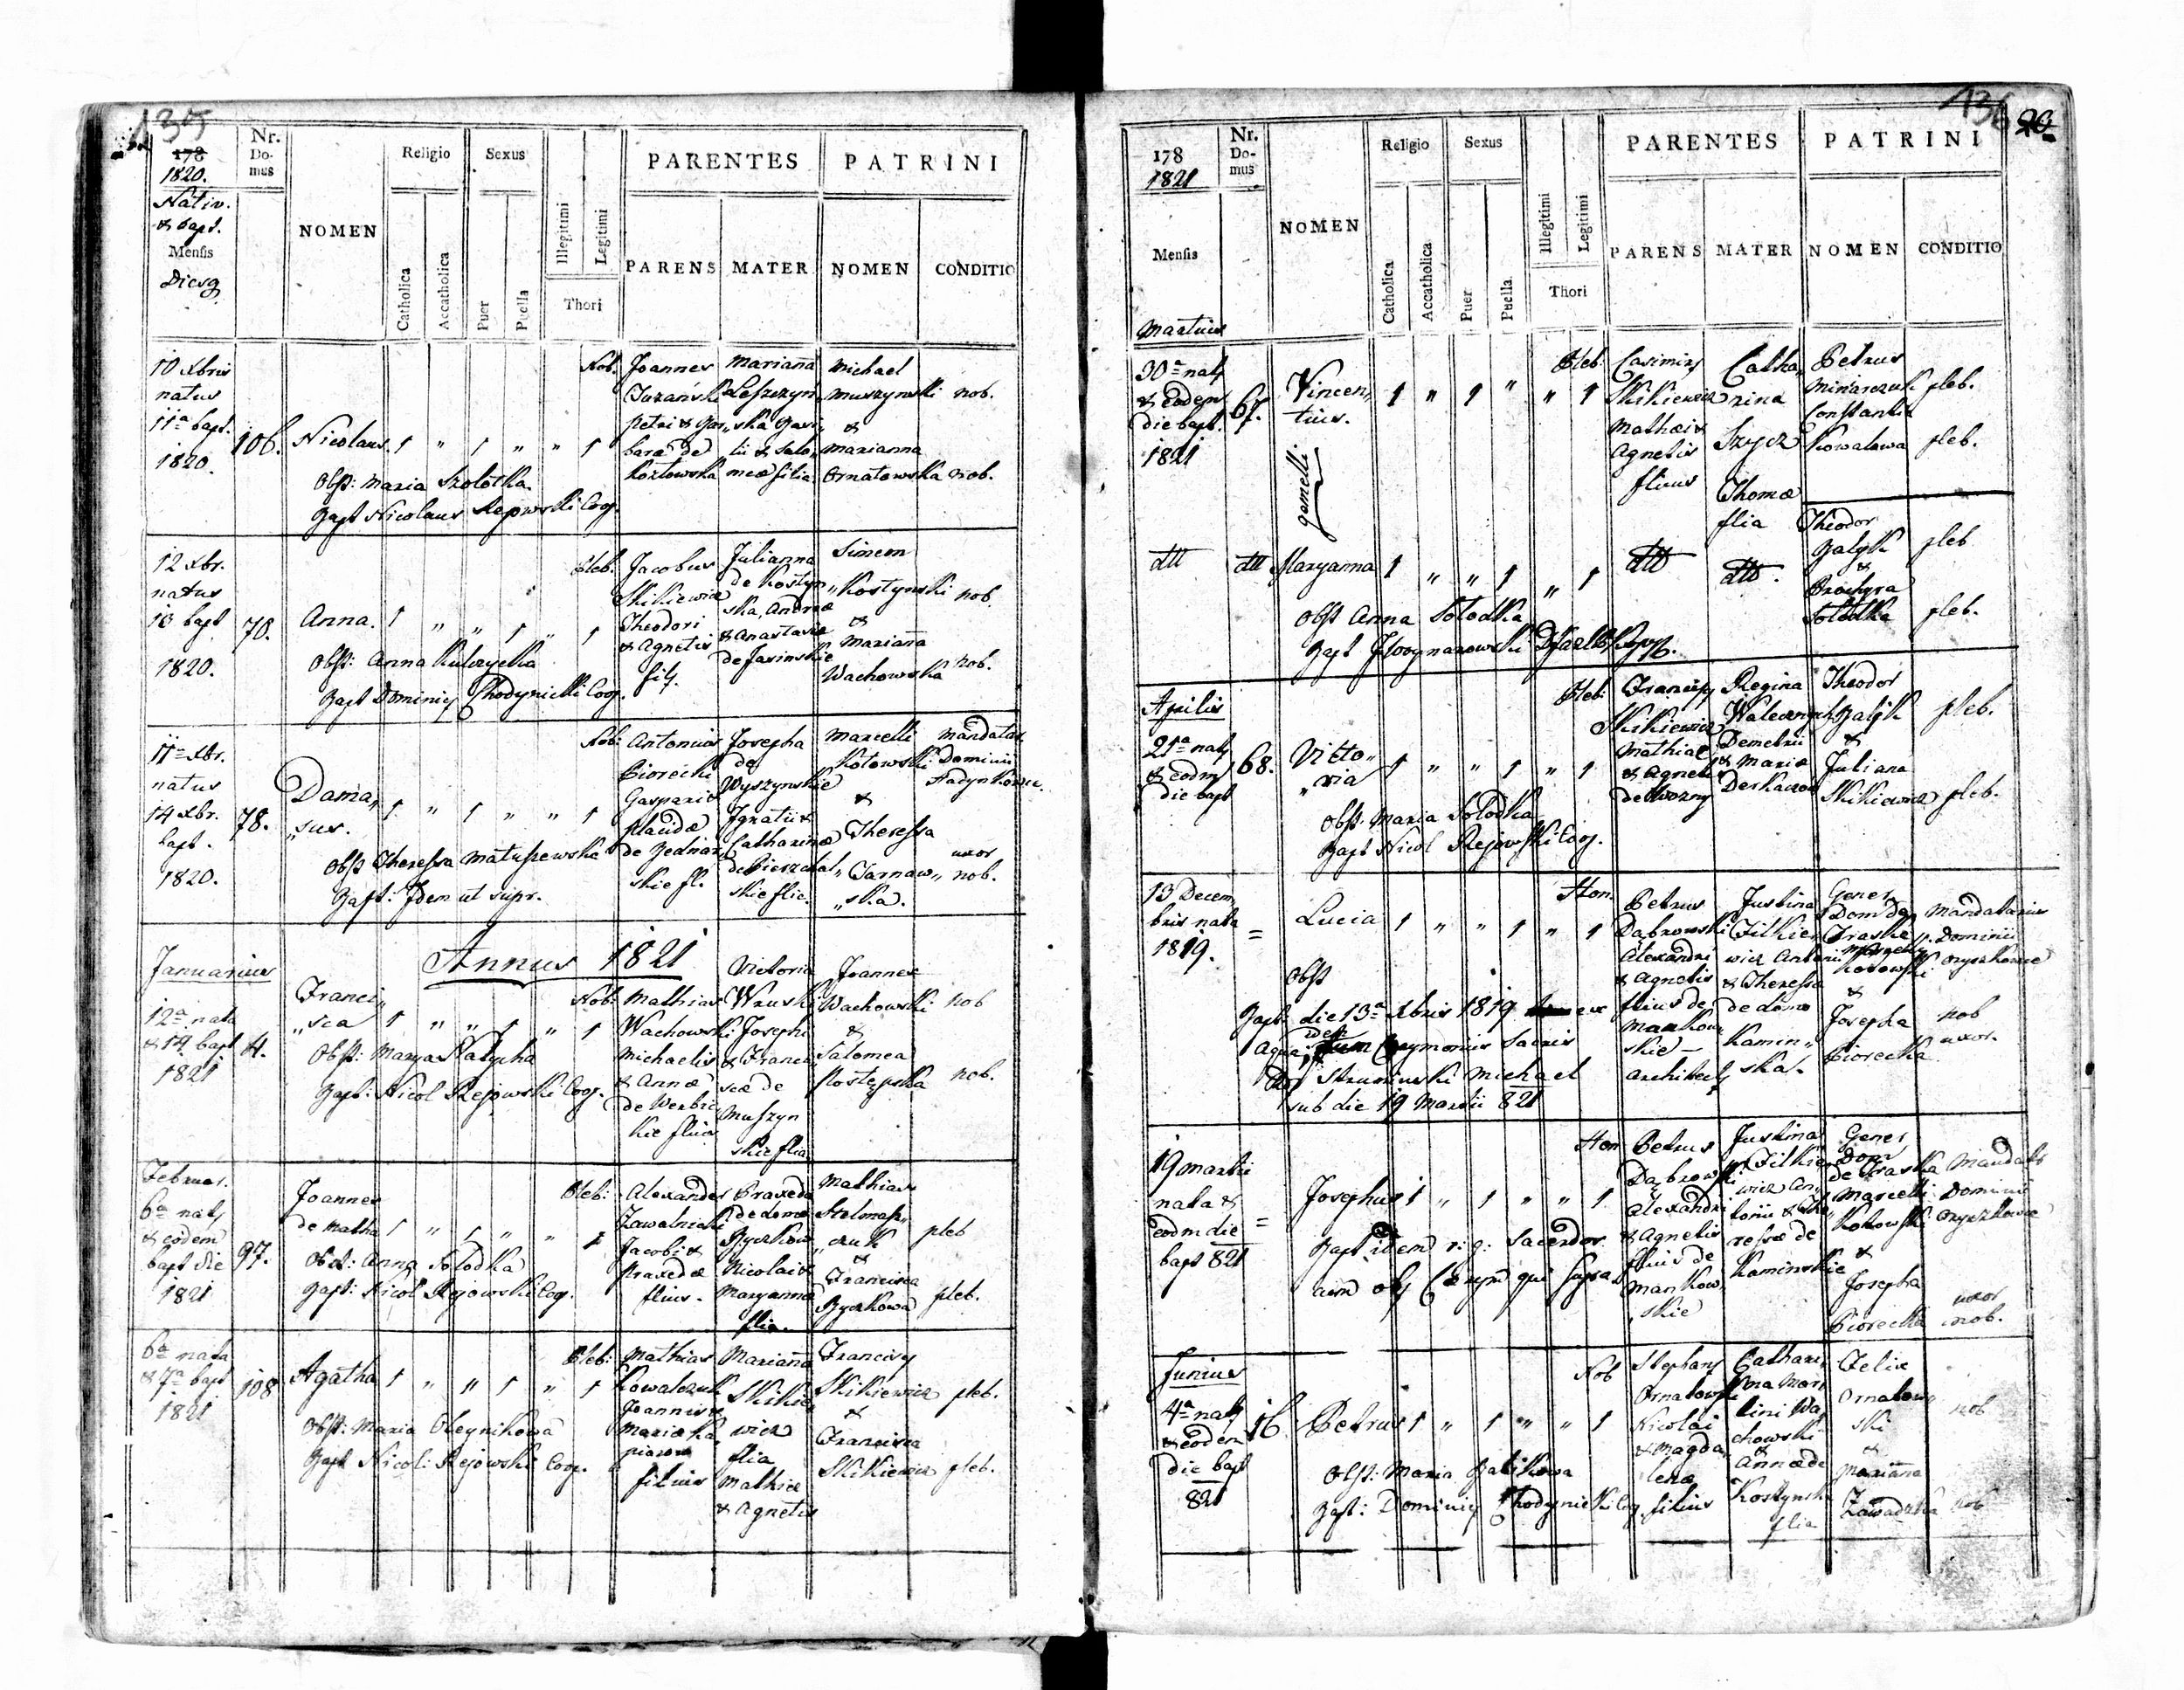 135
178
1820.
Nativ.
& bapt.
Mensis
Diesq
Nr.
Do-
mus
NOMEN
Religio
Catholica
Accatholica
Sexus
Puer
Puella
Illegitimi
Legitimi
Thori
PARENTES
PARENS
MATER
PATRINI
NOMEN
CONDITIO
10 Xbris
natus
11a bapt.
1820.
106.
Nicolaus. 1 " 1 " " 1
Obst: Maria Szolotka
Bapt Nicolaus Rejowski Coop.
Nob.
Joannes
Petri & Bar„
bara de
Kozłowska
Marianna
Leszczyń„
ska Basi„
lii & Salo„
meæ filia
Michael
Muszynski nob.
&
Marianna
Ornatowska nob.
12 Xbr.
natus
13 bapt
1820.
70.
Anna. 1 " " 1 " 1
Obst: Anna Kulczycka
Bapt Dominicy Chodynicki Coop.
Pleb.
Jacobus
Skikiewicz
Theodori
& Agnetis
Julianna
de Kostyn„
ska, Andreæ
& Anastasiæ
de Jasinskie
Simeon
Kostynski nob.
&
Marianna
Wachowska nob.
11a Xbr.
natus
14 Xbr.
bapt.
1820.
78.
Dama„
„sus. 1 " 1 " " 1
Obst Theressa Matuszewska
Bapt: Idem ut supr.
Nob.
Antonius
Piorecki
Gasparis
Placidæ
Josepha
de
Wyszynskie
Ignatii &
Catharinæ
skie flia.
Marcelli
Kotowski
&
Theressa
Tarnaw„
„ska.
Mandatar
Dominii
uxor
nob.
Annus 1821
Januarius
12a nata
& 14 bapt
1821
4.
Franci„
„sca 1 " " 1 " 1
Obst: Marya Natycha
Bapt: Nicol Rejowski Coop.
Nob:
Mathias
Wachowski
Michaelis
& Annæ
de Werbic
kie flius
Victoria
Wruski
Josephi
& Franci„
scæ de
Muszyn
skie flia
Joannes
Wachowski nob
&
Salomea
Postępska nob.
Februar.
6a naty
& eodem
bapt die
1821
97.
Joannes
de Matha 1 " 1 " " 1
Obst: Anna Solodka
Bapt: Nicol Rejowski Coop.
Pleb:
Alexander
Zawalnicki
Jacobi &
Praxedæ
flius.
Praxeda
de domo
Byczkow
Nicolai &
Maryanna
flia.
Mathias
Stelmasz„
„czuk pleb
&
Francisca
Byczkowa pleb.
6a nata
& 7a bapt
1821
108
Agatha 1 " " 1 " 1
Obst: Maria Oleynikowa
Bapt Nicol: Rejowski Coop.
Pleb:
Mathias
Kowalczuk
Joannis &
Mariæ Ka„
filius
Marianna
Skikie„
wicz
flia
Mathiæ
& Agnetis
Franciscy
Skikiewicz pleb.
&
Francisca
Skikiewicz pleb.
136
20
178
1821
Mensis
Martius
Nr.
Do-
mus
NOMEN
Religio
Catholica
Accatholica
Sexus
Puer
Puella
Illegitimi
Legitimi
Thori
PARENTES
PARENS
MATER
PATRINI
NOMEN
CONDITIO
30a naty
& Eodem
die bapt.
1821
67.
Vincen„
tius. 1 " 1 " " 1
gemelli
Pleb.
Casimirs
Skikiewicz
Mathæi &
Agnetis
flius
Catha„
rina
Szycz
Thomæ
flia
Petrus
Miniarczuk pleb.
Constantia
Kowalowa pleb.
dtt dtt Maryanna 1 " " 1 " 1
Obst Anna Solodka
dtt
dtt.
Theodor
Balyk pleb
&
Solodka pleb.
Aprilis
21a naty
& eodm
die bapt
68.
Victo„
„ria 1 " " 1 " 1
Obst: Maria Solodka
Bapt Nicol Rejowski Coop.
Pleb:
Franciscy
Skikiewicz
Mathiæ
& Agnetis
de Wozny
Regina
Demetrii
& Mariæ
Derkaczow
Theodor
Balyk pleb.
&
Juliana
Skikiewicz pleb.
13 Decem
bris nata
1819.
=
Lucia 1 " " 1 " 1
Obst
Bapt: die 13a Xbris 1819 ex
aqua, idem Ceremoniis Sacris
Struminski Michael
sub die 19 Martii 821
Hon.
Petrus
Dąbrowski
Alexandri
& Agnetis
flius de
Mankow„
skie –
architecty
Justina
Filkie„
wicz Antonii
& Theressa
de domo
Kamin„
ska.
Gener
Dom de
Traska
Marcelly
Kotowski
&
Josepha
Piorecka
Mandatarius
Dominii
Oryszkowce
nob
uxor.
19 Martii
nata &
eodm die
bapt 821
=
Josephus 1 " 1 " " 1
Bapt idem r. g: Sacerdos
cum obs Cerym qui supra
Hon
Petrus
Dąbrowski
Alexandri
& Agnetis
flius de
Mankow„
„skie
Justina
Filkie„
wicz An„
tonii & The„
ressæ de
Kaminskie
Gener
Dom
de Traska
Marcelli
Kotowski
&
Josepha
Piorecka
Mandat
Dominii
Oryszkowce
uxor
nob.
Junius
4a naty
& eodem
die bapt
821
16.
Petrus 1 " 1 " " 1
Obst: Maria Balikowa
Bapt: Dominicy Chodynicki Coop.
Nob
Stephany
Ornatowski
Nicolai
& Magda„
lenæ
filius
Cathari„
na Mar„
tini Wa„
chowski
&
Annæ de
Kostynska
flia
Felix
Ornatow„
ski
&
Marianna
Zawadzka
nob
nob